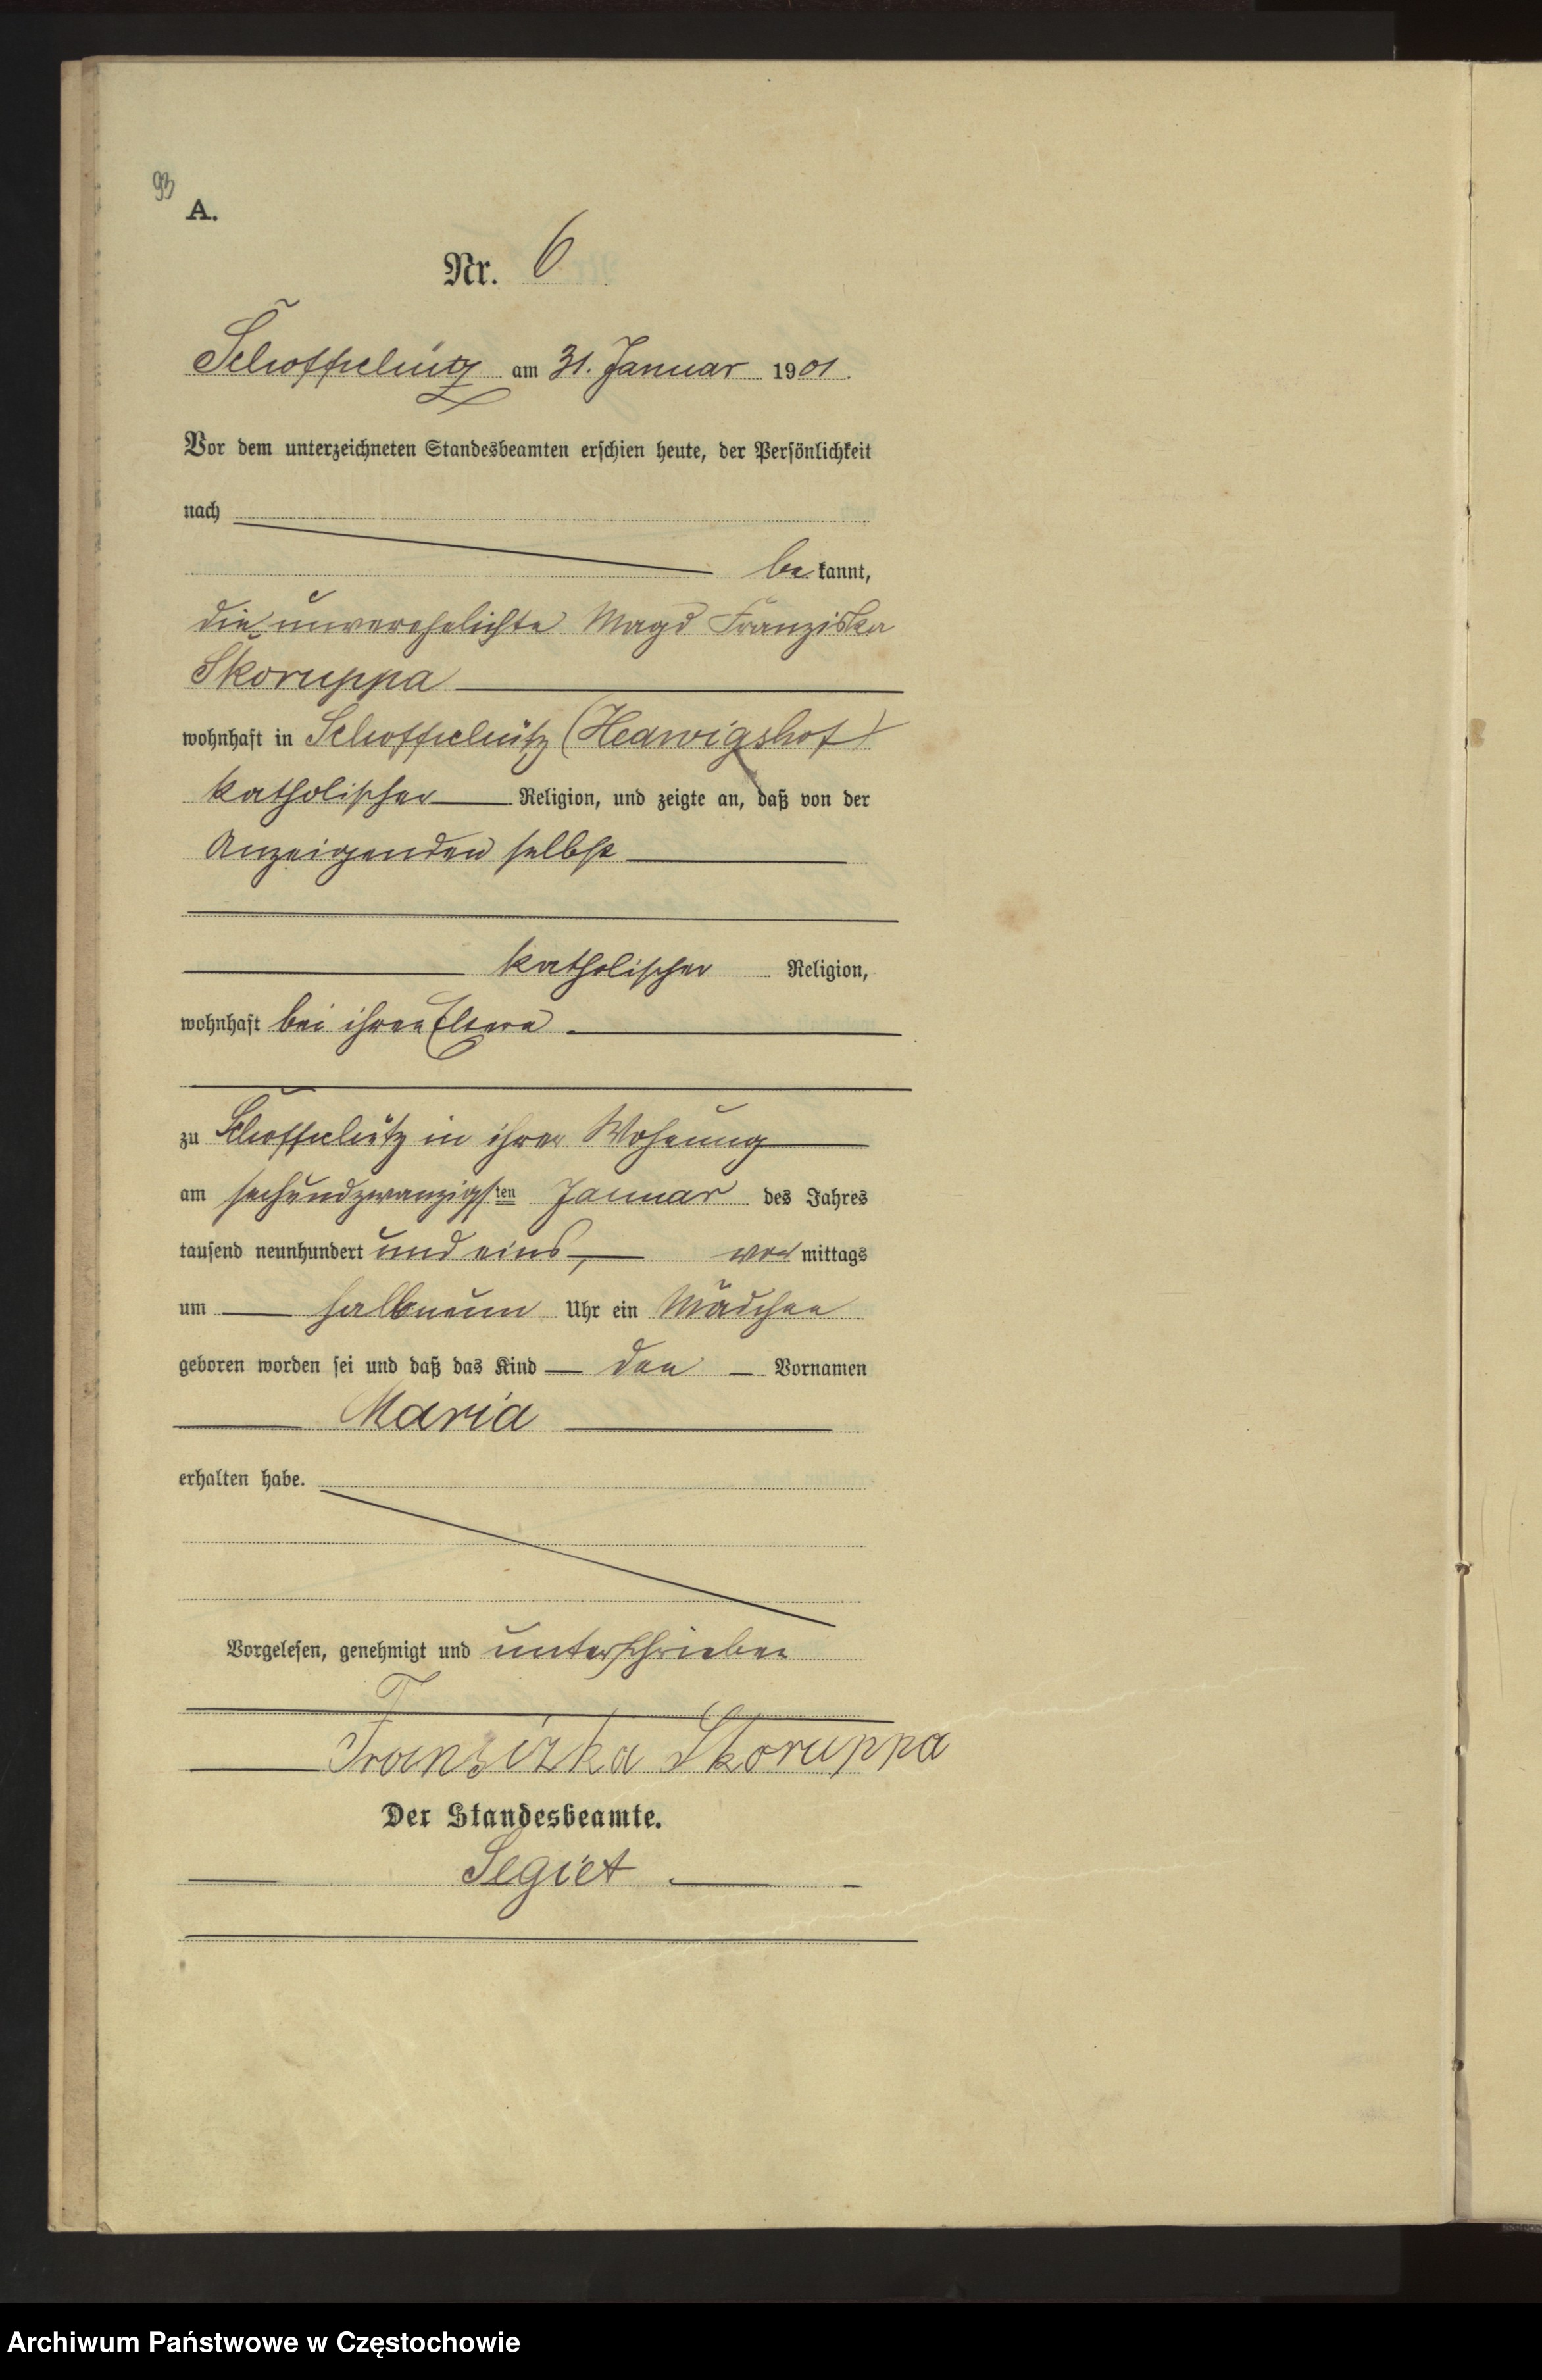 93
A.
Nr. 6
Schoffschütz am 31. Januar 1901.
Vor dem unterzeichneten Standesbeamten erschien heute, der Persönlichkeit
nach
bekannt,
die unverehelichte Magd Franziska
Skoruppa
wohnhaft in Schoffschütz (Hedwigshof)
katholischer Religion, und zeigte an, daß von der
Anzeigenden selbst
katholischer Religion,
wohnhaft bei ihren Eltern
zu Schoffschütz in ihrer Wohnung
am sechsundzwanzigsten Januar des Jahres
tausend neunhundert und eins, vormittags
um halb neun Uhr ein Mädchen
geboren worden sei und daß das Kind den Vornamen
Maria
erhalten habe.
Vorgelesen, genehmigt und unterschrieben
Franziska Skoruppa
Der Standesbeamte.
Segiet
Archiwum Państwowe w Częstochowie